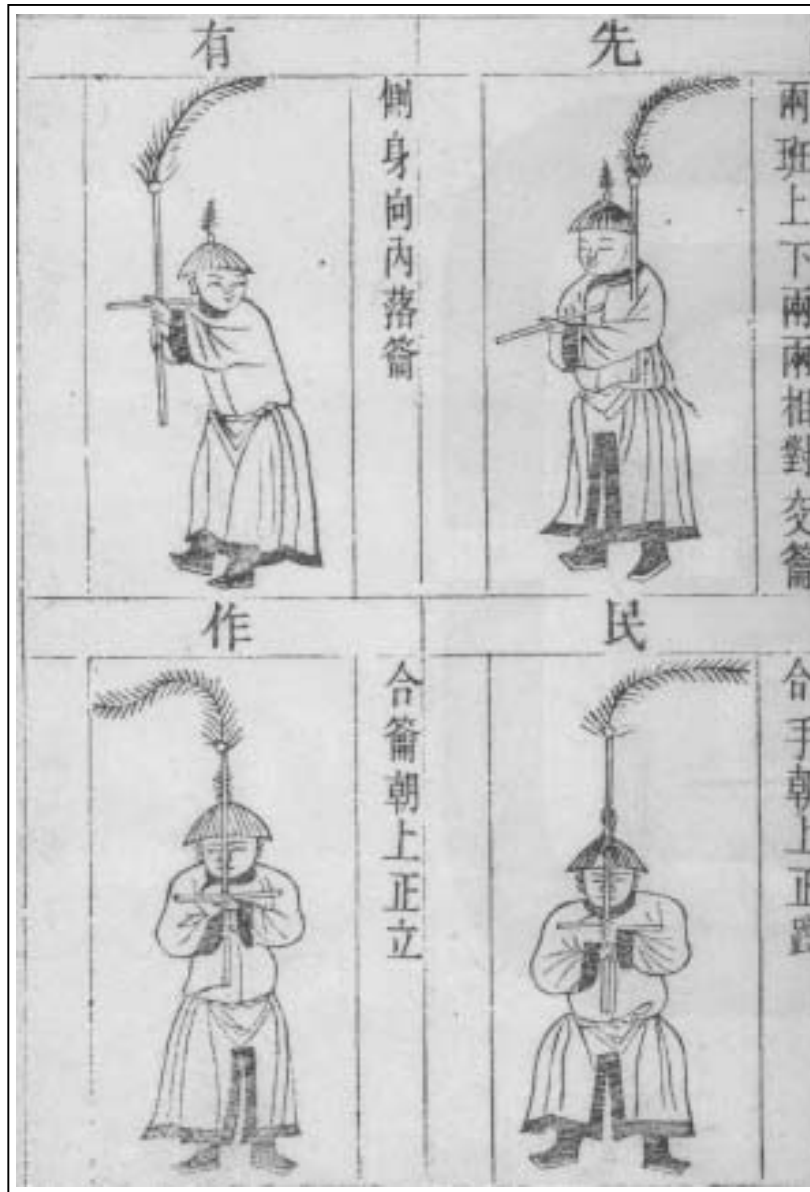 先
兩班上下兩兩相對交籥
有
側身向內落籥
民
合手朝上正蹲
作
合籥朝上正立